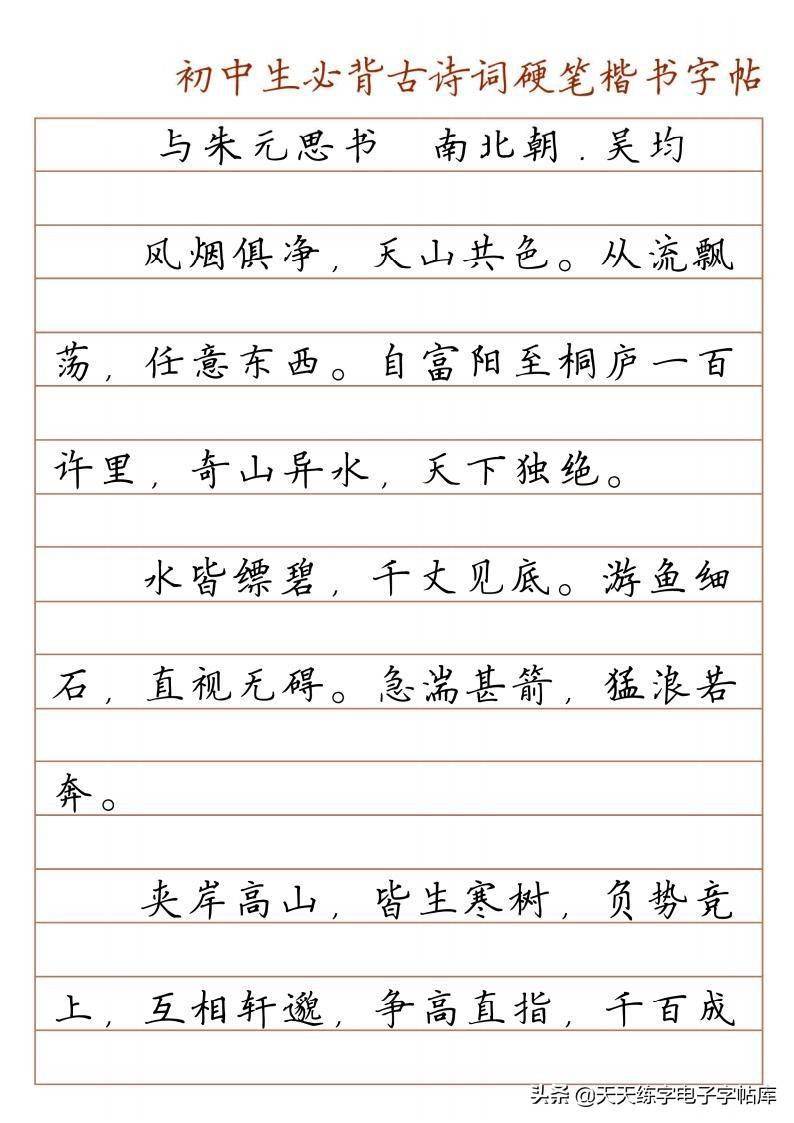 初中生必背古诗词硬笔楷书字帖
与朱元思书 南北朝.吴均
风烟俱净，天山共色。从流飘
荡，任意东西。自富阳至桐庐一百
许里，奇山异水，天下独绝。
水皆缥碧，千丈见底。游鱼细
石，直视无碍。急湍甚箭，猛浪若
奔。
夹岸高山，皆生寒树，负势竞
上，互相轩邈，争高直指，千百成
头条 @天天练字电子字帖库